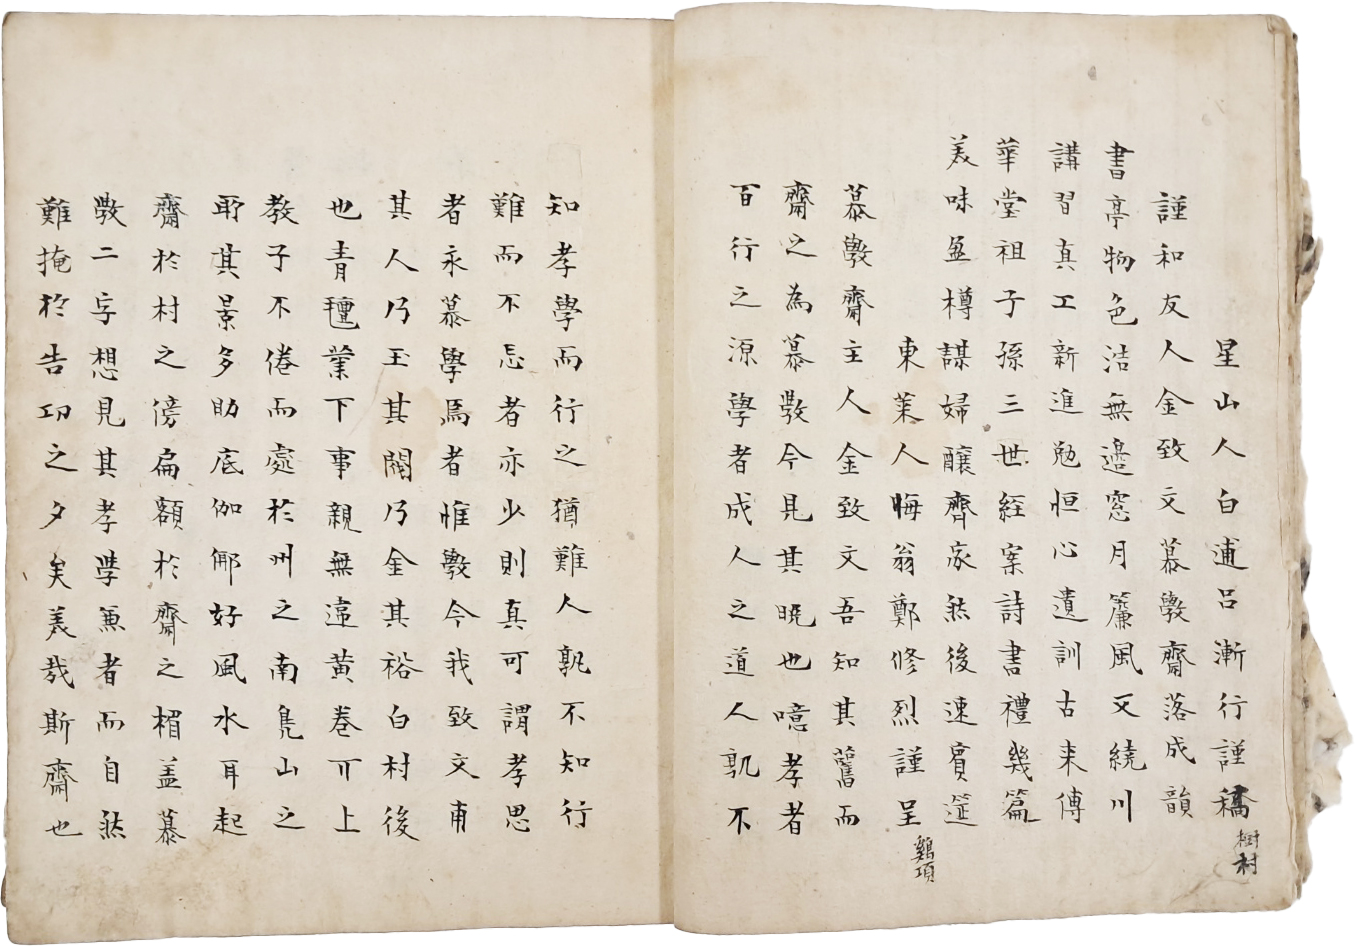 星山人白逋呂漸行謹稿
樹村
謹和友人金致文慕斆齋落成韻
書亭物色洁無邉窓月簾風又繞川
講習真工新進勉恒心遺訓古来傳
華堂祖子孫三世經案詩書禮幾篇
美味盈樽謀婦釀齊家然後速賓筵
東萊人晦翁鄭修烈謹呈
鷄項
慕斆齋主人金致文吾知其舊而
齋之為慕斆今見其晚也噫孝者
百行之源學者成人之道人孰不
知孝學而行之猶難人孰不知行
難而不忘者亦少則真可謂孝思
者永慕學焉者惟斆今我致文甫
其人乃玉其閥乃金其裕白村後
也青氊業下事親無違黄卷丌上
教子不倦而處於州之南鳧山之
耶其景多助底伽倻好風水耳起
齋於村之傍扁額於齋之楣盖慕
斆二字想見其孝學兼者而自然
難掩於告功之夕矣美哉斯齋也